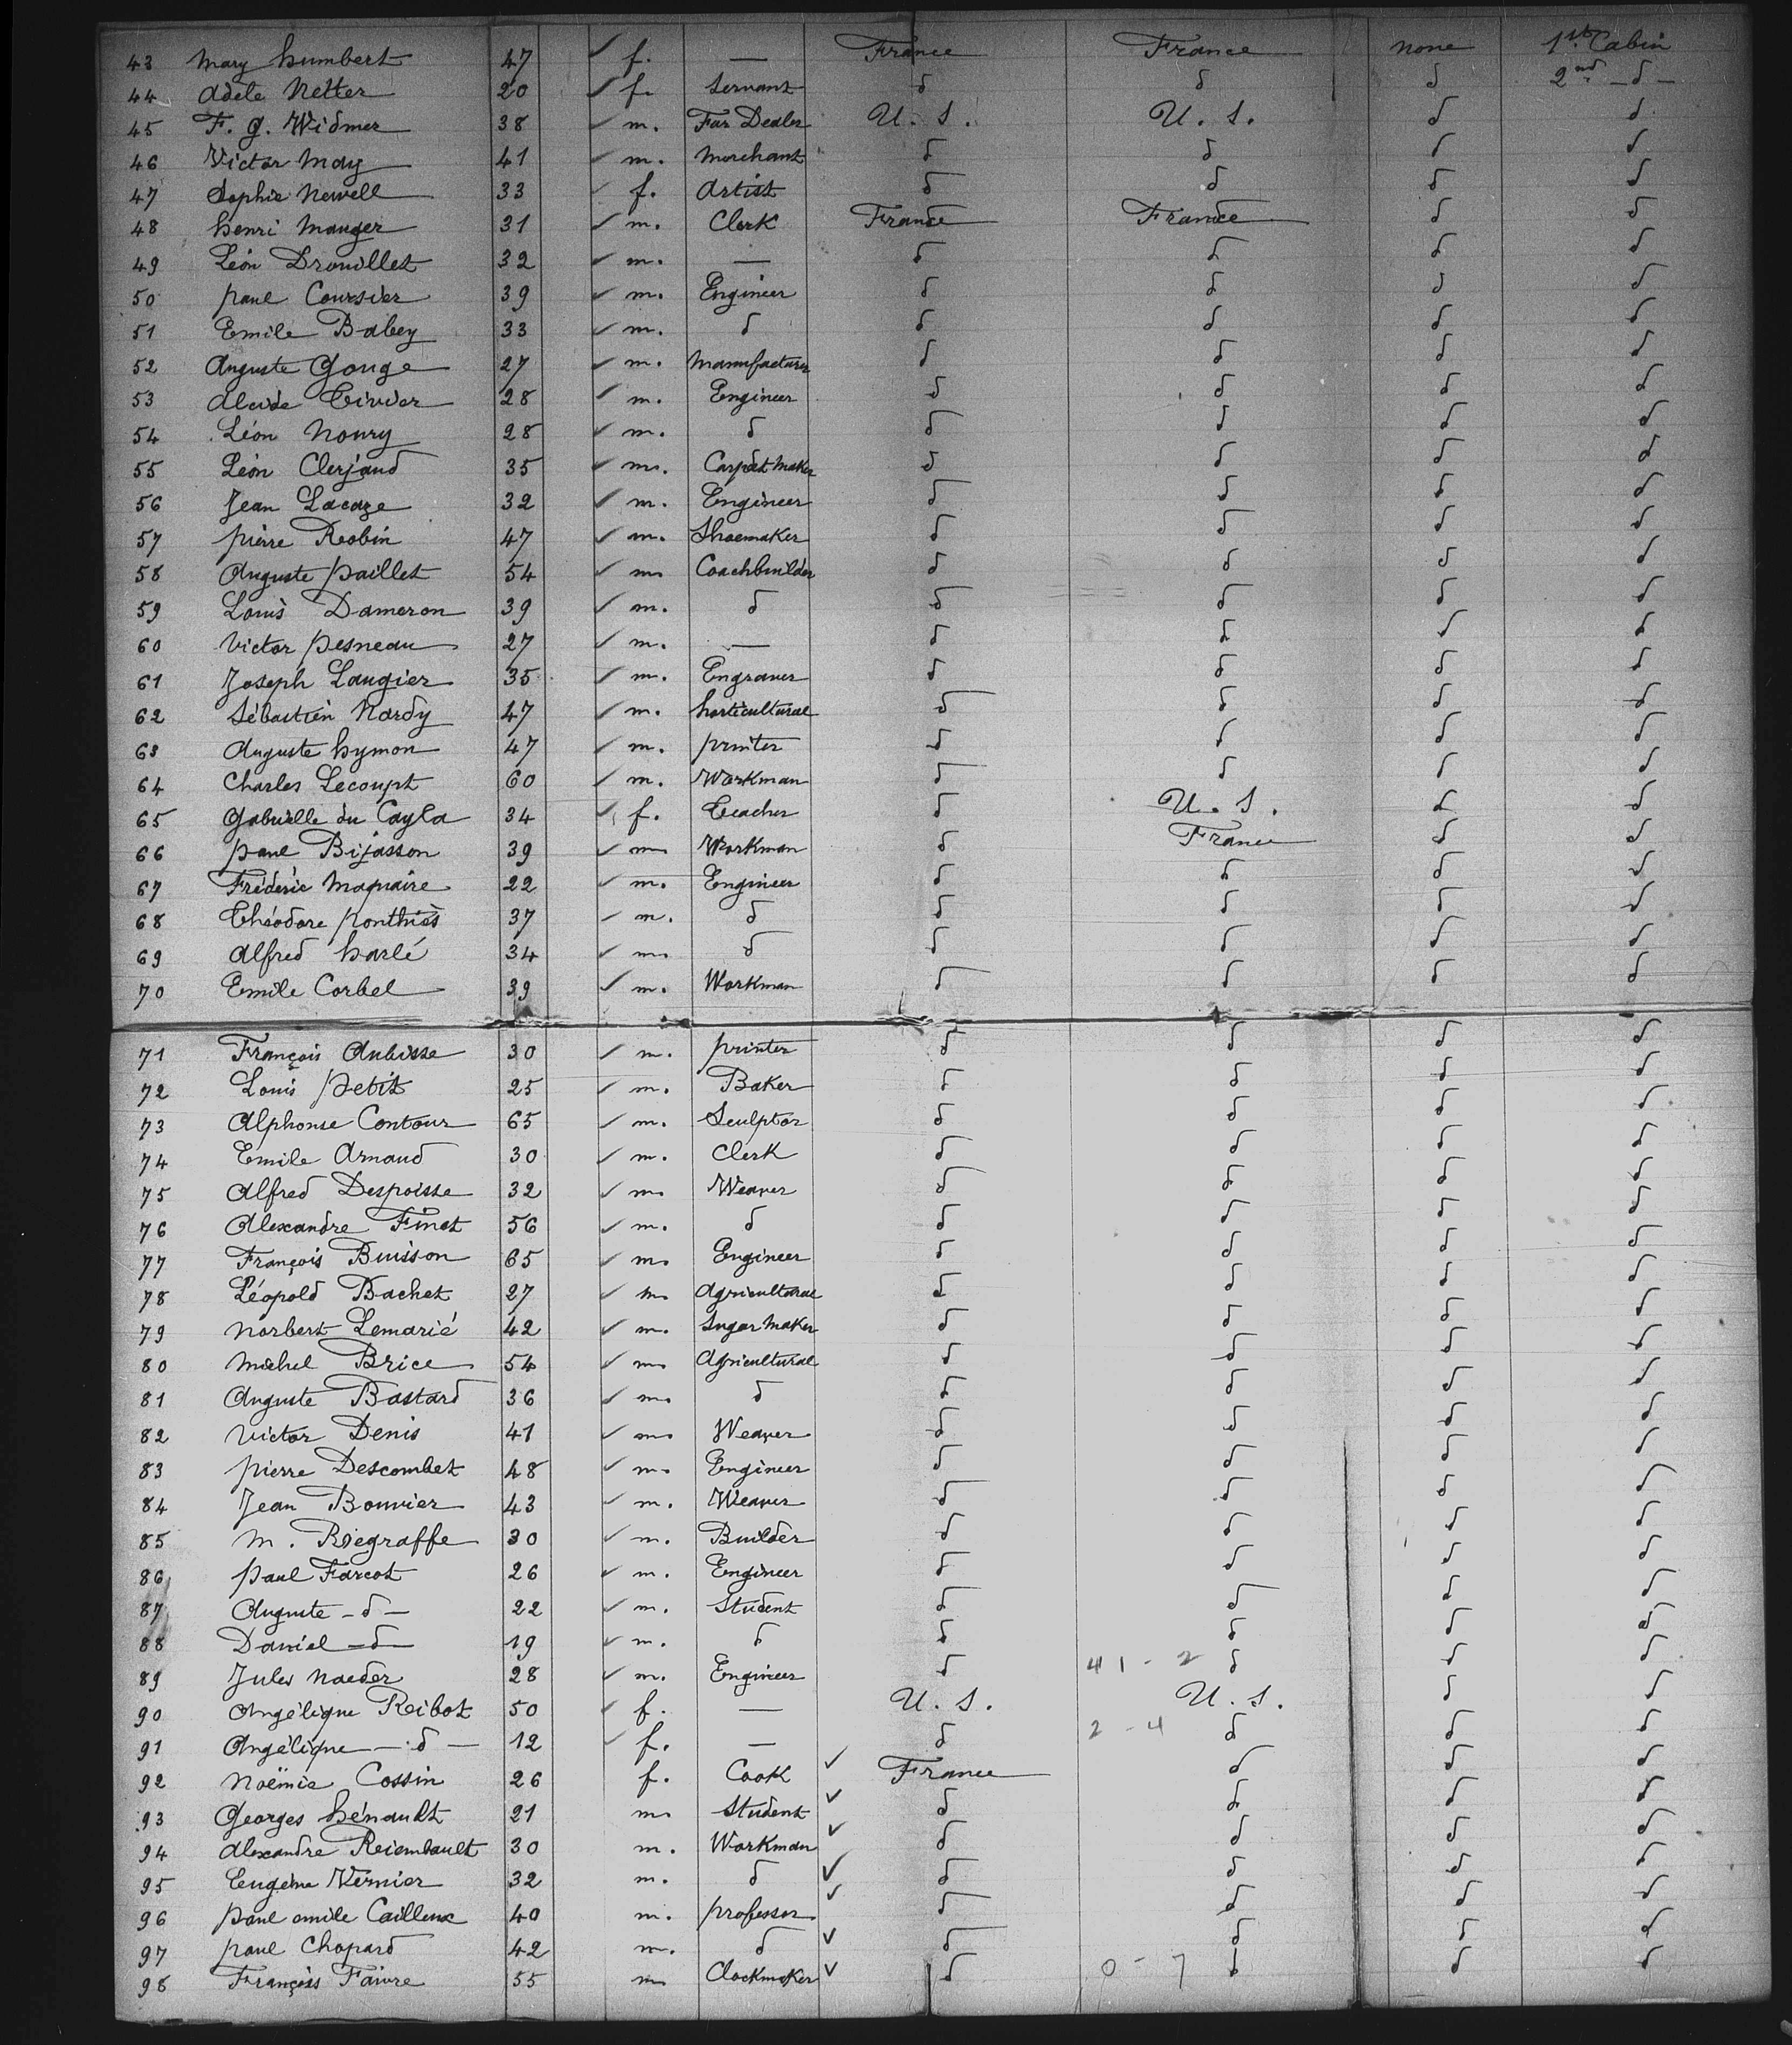 43 Mary Humbert 47 ✓ f. — France France none 1st Cabin
44 Adèle Netter 20 ✓ f. Servant d d d 2nd - d -
45 F. G. Widmer 38 ✓ m. Fur Dealer U. S. U. S. d d
46 Victor May 41 ✓ m. Merchant d d d d
47 Sophie Newell 33 ✓ f. Artist d d d d
48 Henri Mauger 31 ✓ m. Clerk France France d d
49 Léon Drouillet 32 ✓ m. — d d d d
50 Paul Coursier 39 ✓ m. Engineer d d d d
51 Emile Babey 33 ✓ m. d d d d d
52 Auguste Gouge 27 ✓ m. Manufacturer d d d d
53 Alcide Civier 28 ✓ m. Engineer d d d d
54 Léon Noury 28 ✓ m. d d d d d
55 Léon Clerjaud 35 ✓ m. Carpet Maker d d d d
56 Jean Lacaze 32 ✓ m. Engineer d d d d
57 Pierre Robin 47 ✓ m. Shoemaker d d d d
58 Auguste Paillet 54 ✓ m Coachbuilder d d d d
59 Louis Dameron 39 ✓ m. d d d d d
60 Victor Pesneau 27 ✓ m. — d d d d
61 Joseph Laugier 35 ✓ m. Engraver d d d d
62 Sébastien Nardy 47 ✓ m. Horticultural d d d d
63 Auguste Hymon 47 ✓ m. Printer d d d d
64 Charles Lecoupt 60 ✓ m. Workman d d d d
65 Gabrielle du Cayla 34 ✓ f. Teacher d U. S. d d
66 Paul Bijasson 39 ✓ m Workman d France d d
67 Fréderic Maquaire 22 ✓ m. Engineer d d d d
68 Théodore Ponthiès 37 ✓ m. d d d d d
69 Alfred Harlé 34 ✓ m. d d d d d
70 Emile Corbel 39 ✓ m. Workman d d d d
71 François Aubisse 30 ✓ m. Printer d d d d
72 Louis Petit 25 ✓ m. Baker d d d d
73 Alphonse Contour 65 ✓ m. Sculptor d d d d
74 Emile Arnaud 30 ✓ m. Clerk d d d d
75 Alfred Despoisse 32 ✓ m Weaver d d d d
76 Alexandre Finet 56 ✓ m. d d d d d
77 François Buisson 65 ✓ m. Engineer d d d d
78 Léopold Bachet 27 ✓ m. Agricultural d d d d
79 Norbert Lemarié 42 ✓ m. Sugar Maker d d d d
80 Michel Brice 54 ✓ m Agricultural d d d d
81 Auguste Bastard 36 ✓ m. d d d d d
82 Victor Denis 41 ✓ m Weaver d d d d
83 Pierre Descombet 48 ✓ m. Engineer d d d d
84 Jean Bouvier 43 ✓ m. Weaver d d d d
85 M. Riegraffe 30 ✓ m. Builder d d d d
86 Paul Farcot 26 ✓ m. Engineer d d d d
87 Auguste - d - 22 ✓ m. Student d d d d
88 Daniel - d - 19 ✓ m. d d d d d
89 Jules Naeder 28 ✓ m. Engineer d 41 - 2 d d d
90 Angélique Reibot 50 ✓ f. — U. S. U. S. d d
91 Angélique - d - 12 ✓ f. — d 2 - 4 d d d
92 Noëmie Cossin 26 f. Cook ✓ France d d d
93 Georges Hénault 21 m. Student ✓ d d d d
94 Alexandre Reiembault 30 m. Workman ✓ d d d d
95 Eugène Vernier 32 m. d ✓ d d d d
96 Paul emile Cailleux 40 m. Professor ✓ d d d d
97 Paul Chopard 42 m. d ✓ d d d d
98 François Faivre 55 m Clockmaker ✓ d 0 - 7 d d d